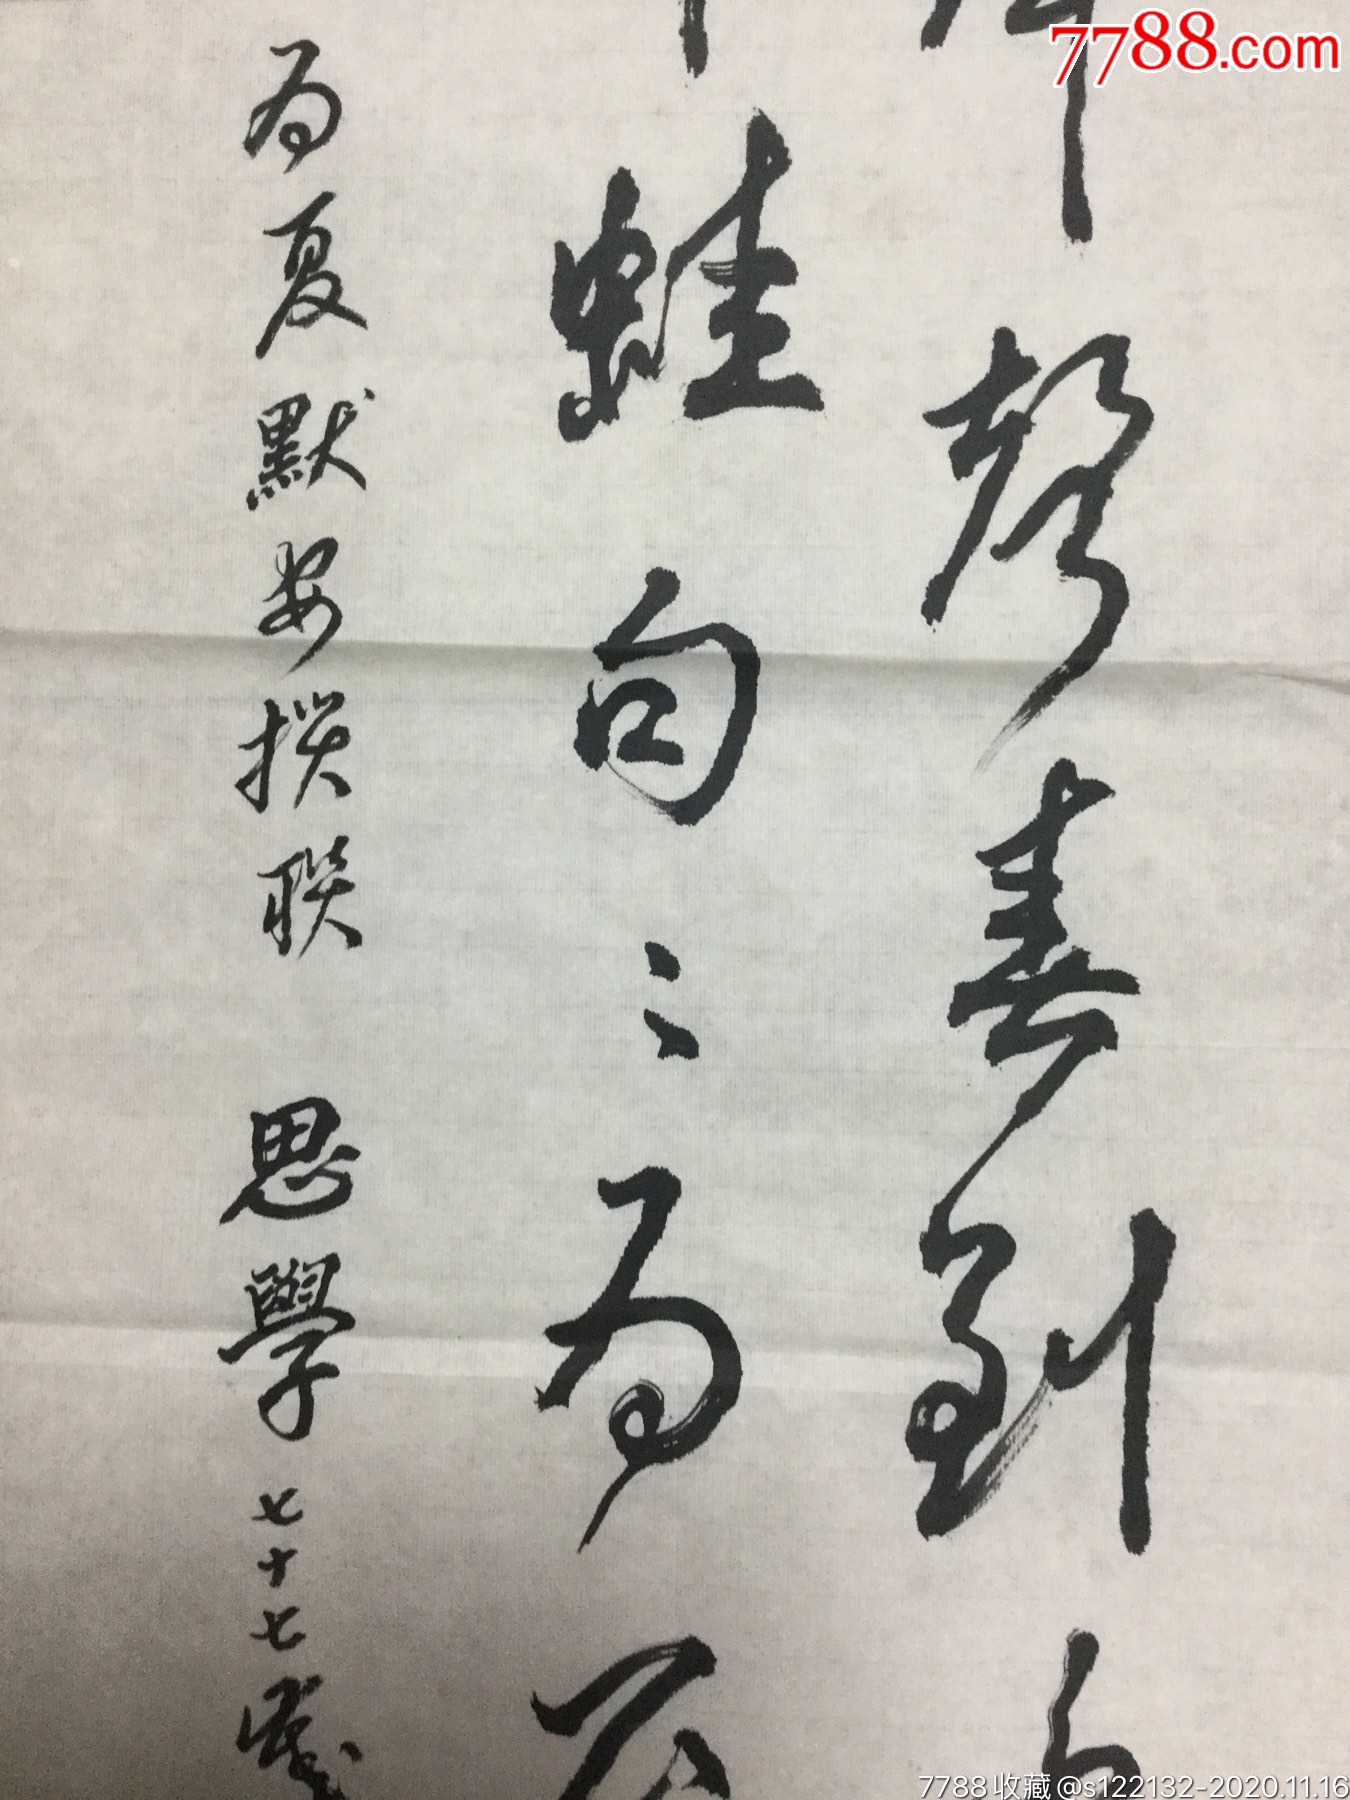 7788.com
声春到
蛙句〻为
为夏默安撰联 思學 七十七歲
7788收藏@s122132-2020.11.16